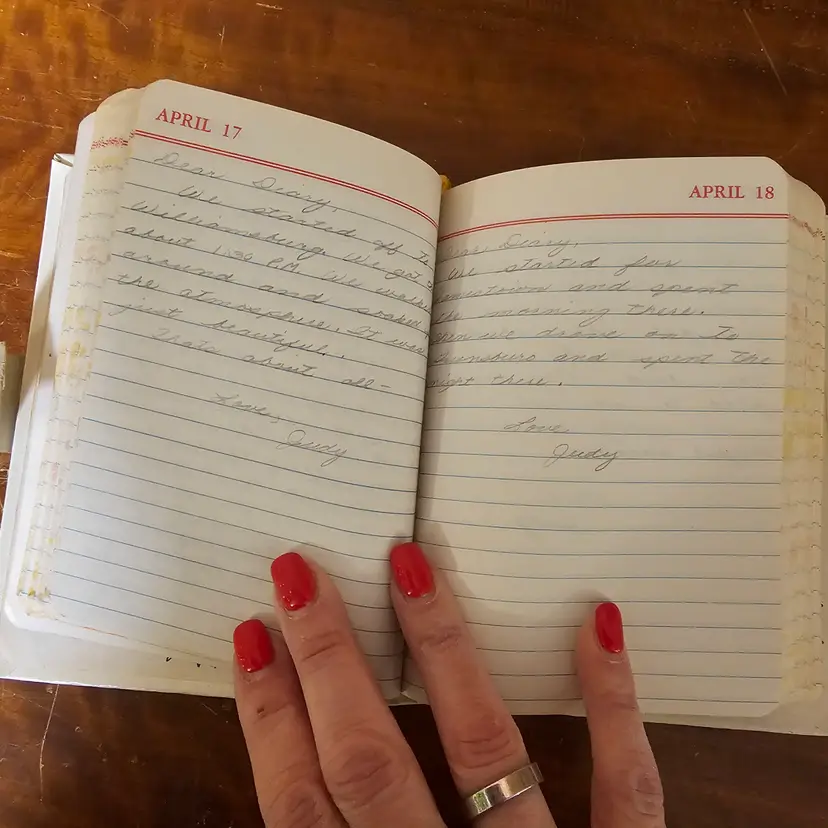 APRIL 17
Dear Diary,
We started off to
Williamsburg. We got
about 1:30 P.M. We walk
around and soaked
the atmosphere. It was
just beautiful.
That's about all-
Love,
Judy
APRIL 18
Dear Diary,
We started for
Jamestown and spent
the morning there.
Then we drove on to
and spent the
night there.
Love
Judy